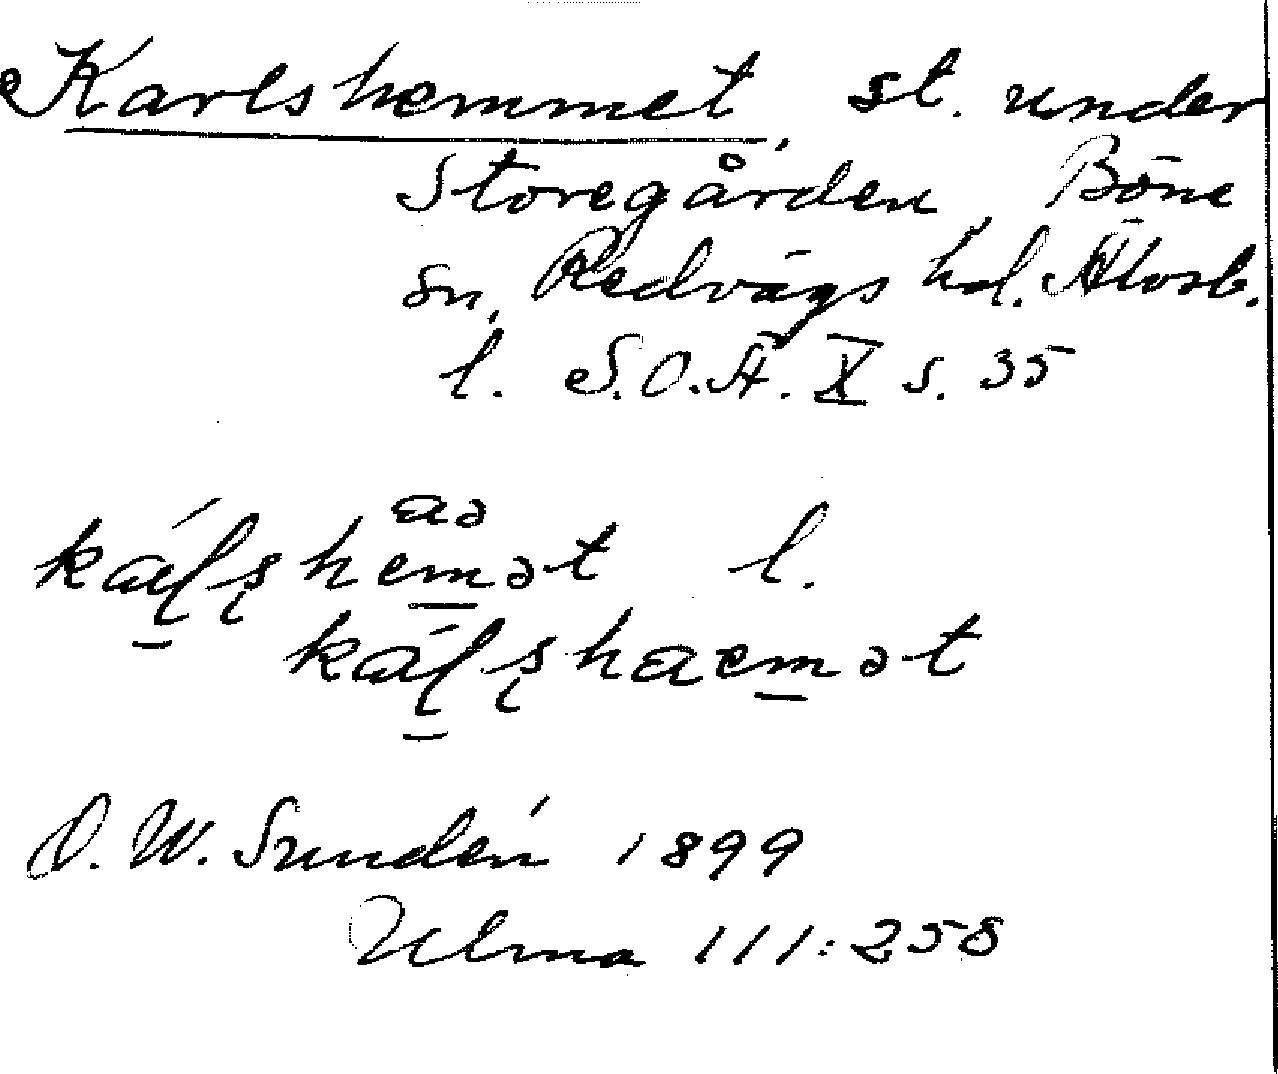 Karlshemmet, st. under
Storegården, Böne
sn, Redvägs hd. Älvsb.
l. S.O.Ä. X s. 35
aə
káļşhemət l.
káļşhaemət
D. W. Sundén 1899
Ulma 111:258